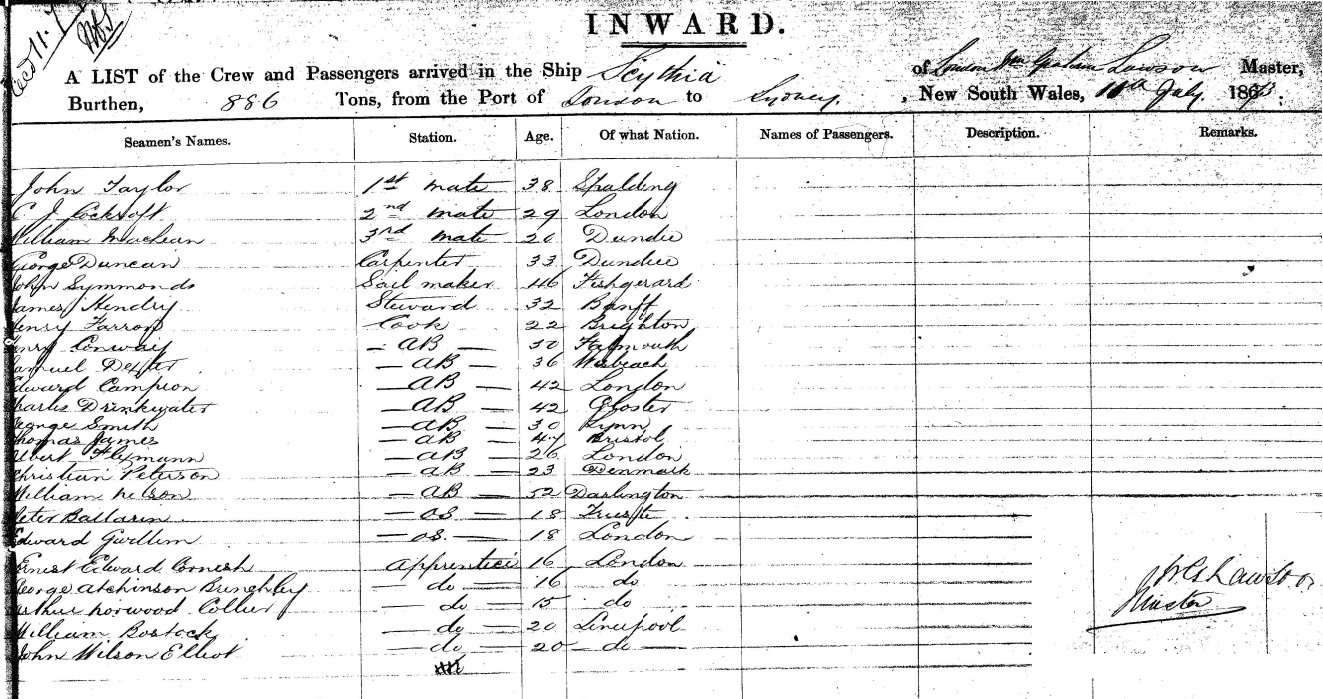 INWARD.
Recd 11.7
A LIST of the Crew and Passengers arrived in the Ship Scythia of London Wm Graham Lawson Master,
Burthen, 886 Tons, from the Port of London to Sydney, New South Wales, 11th July 1873:
Seamen's Names. Station. Age. Of what Nation. Names of Passengers. Description. Remarks.
John Taylor 1st mate 38 Spalding
C J Cockroft 2nd mate 29 London
William Maclean 3rd mate 20 Dundee
George Duncan Carpenter 33 Dundee
John Symmonds Sail maker 46 Fishgerard
James Hendry Steward 32 Banff
Henry Farrow Cook 22 Brighton
Henry Conway — AB — 50 Falmouth
Samuel Dexter — AB — 36 Wisbeach
Edward Campion — AB — 42 London
Charles Drinkwater — AB — 42 Gloster
George Smith — AB — 30 Lynn
Thomas James — AB — 47 Bristol
Albert Fleymann — AB — 26 London
Christian Peterson — AB — 23 Denmark
William Nelson — AB — 52 Darlington
Peter Ballarin — OS — 18 Trieste
Edward Gwillim — OS. — 18 London
Ernest Edward Cornish Apprentice 16 London
George Atchinson Brinchley — do — 16 do
Arthur Norwood Collier — do — 15 do
William Bostock — do 20 Liverpool
John Wilson Elliot — do — 20 — do —
W G Lawson
Master